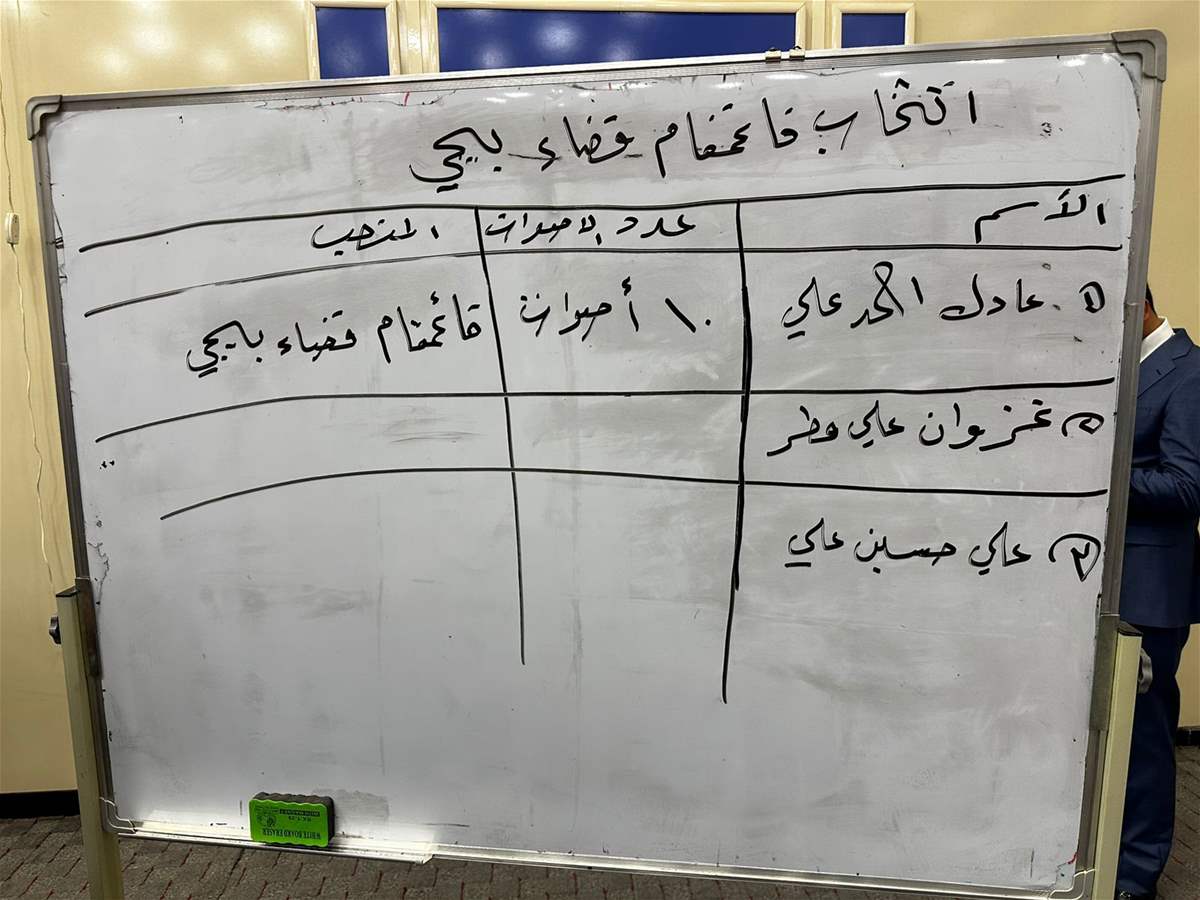 انتخاب قائمقام قضاء بيجي
الأسم عدد الاصوات المنتخب
١ عادل احمد علي ١٠ أصوات قائمقام قضاء بيجي
٢ غزوان علي مطر
٣ علي حسين علي
WHITE BOARD ERASER